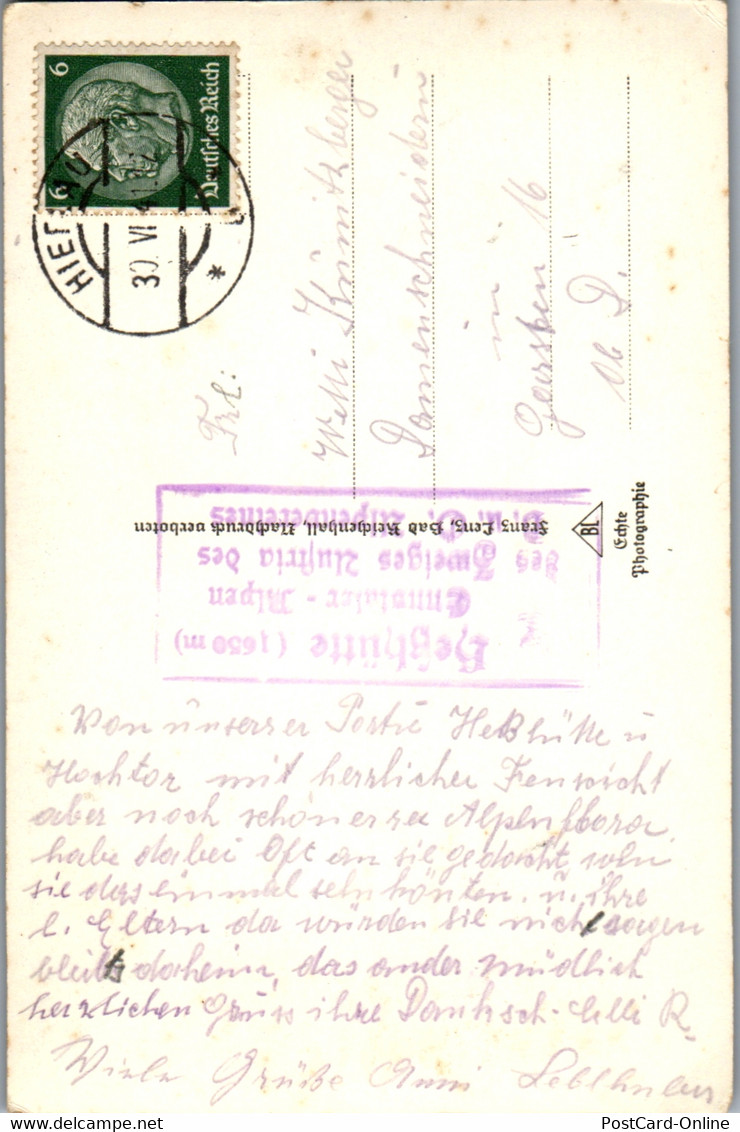 6 6
Deutsches Reich
30. VI
Frl:
Damenschneiderin
in
16
Echte
Photographie
BL
Franz Lenz, Bad Reichenhall, Nachdruck verboten
Heßhütte (1650 m)
Ennstaler-Alpen
des Zweiges Austria des
D. u. Ö. Alpenvereines
Von unserer Heßhütte u
Hochtor mit herrlicher
aber noch schönerer
habe dabei Oft an sie gedacht wen
sie das einmal sehn könten. u. ihre
l. Eltern da würden sie nicht sagen
bleibt daheim, das ander mündlich
herzlichen Gruss ihre
Viele Grüße Anni
PostCard-Online